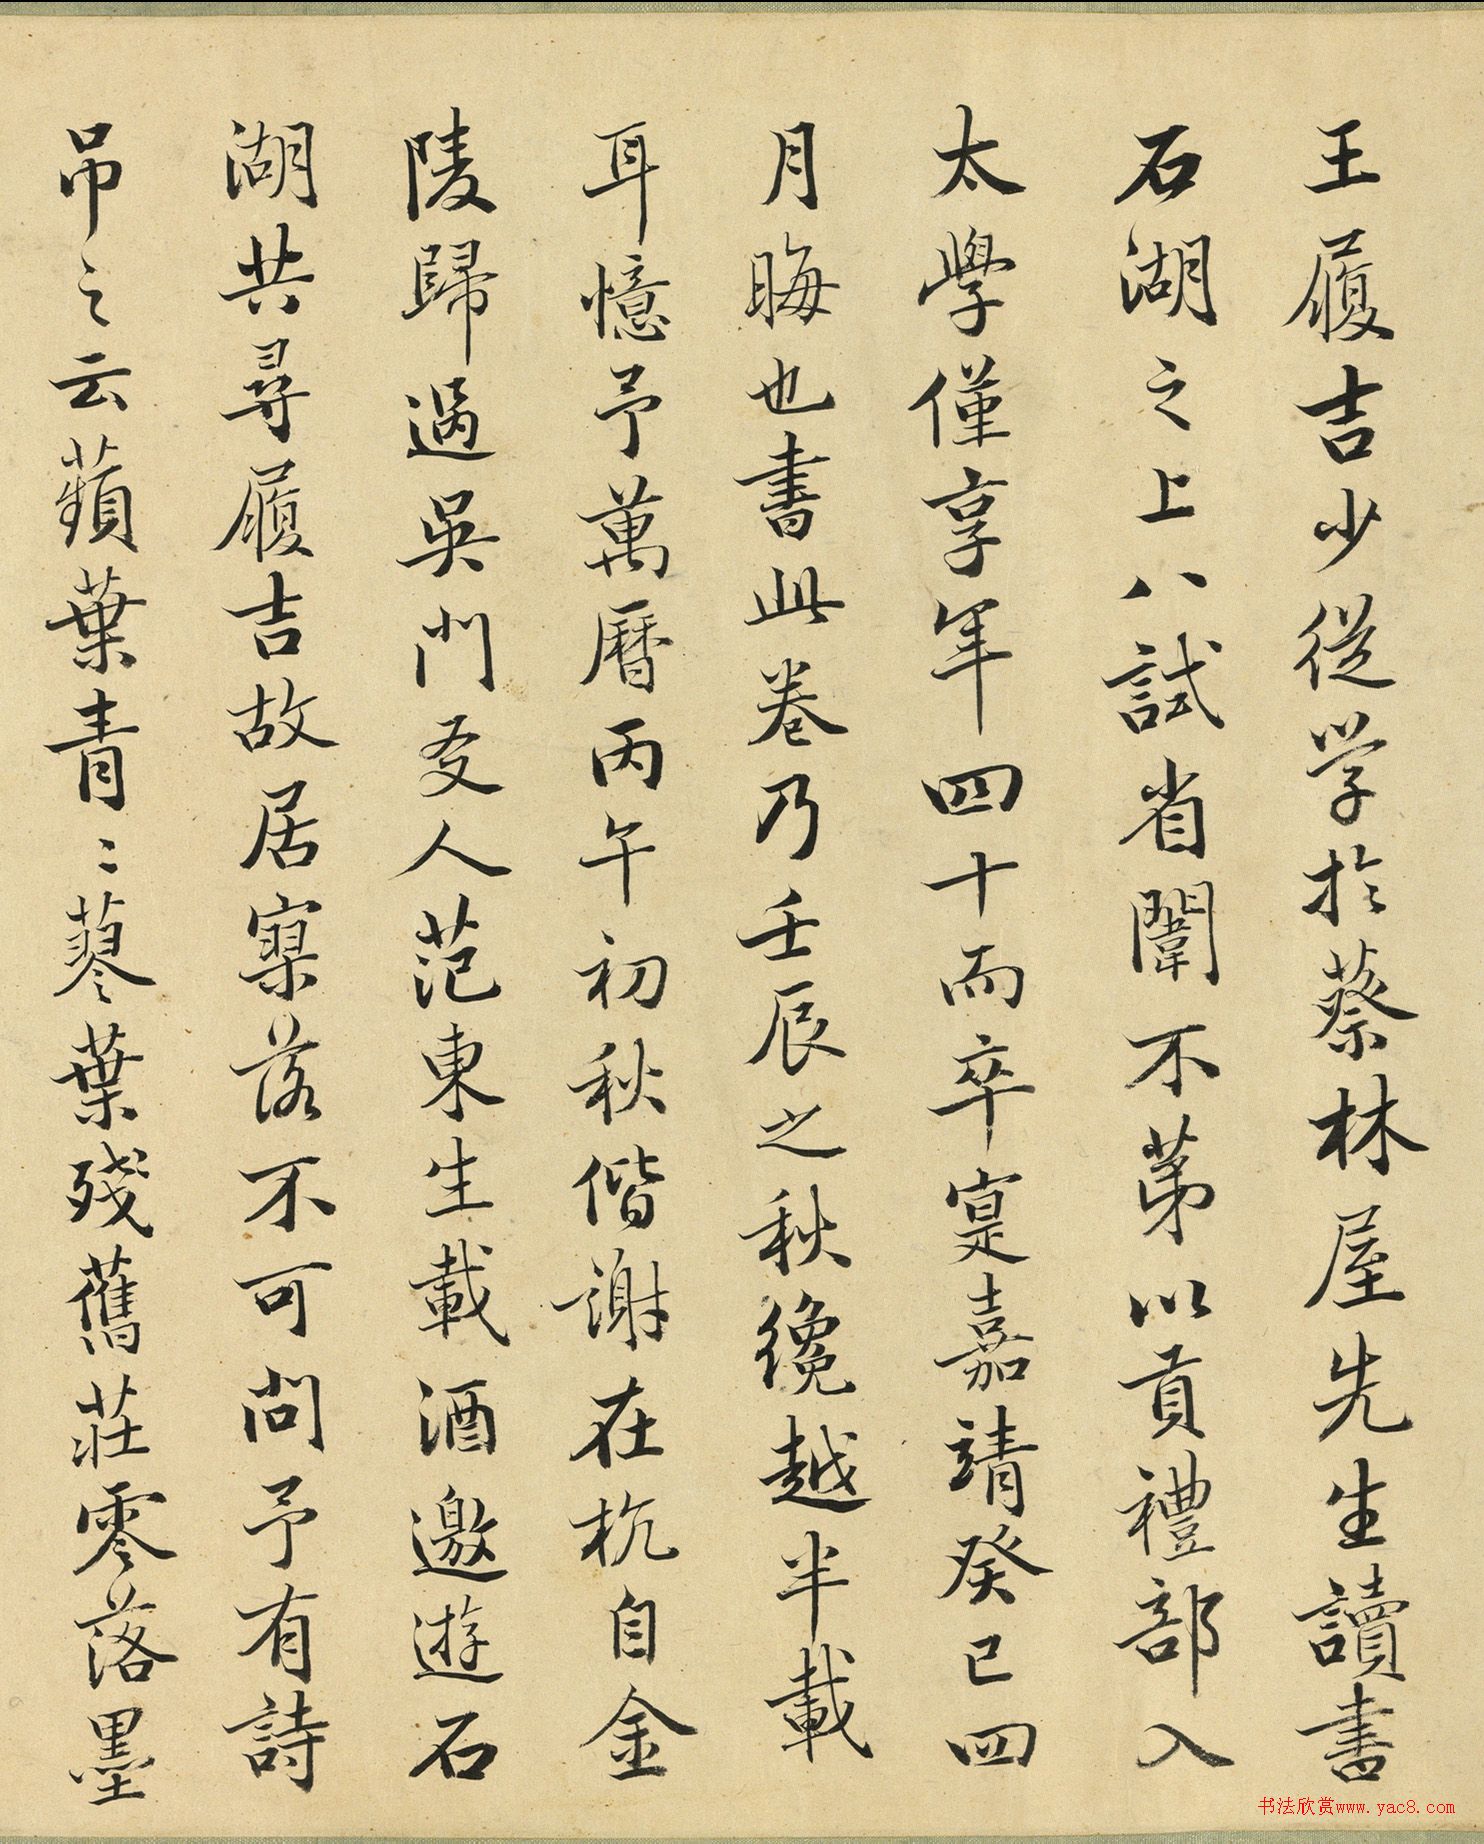 王履吉少從学於蔡林屋先生讀書
石湖之上八試省闈不苐以貢禮部入
太學僅享年四十而卒寔嘉靖癸巳四
月晦也書此卷乃壬辰之秋纔越半載
耳憶予萬曆丙午初秋偕謝在杭自金
陵歸過吳門友人范東生載酒邀遊石
湖共尋履吉故居寥落不可問予有詩
吊之云蘋葉青〻蓼葉殘舊莊零落墨
书法欣赏www.yac8.com